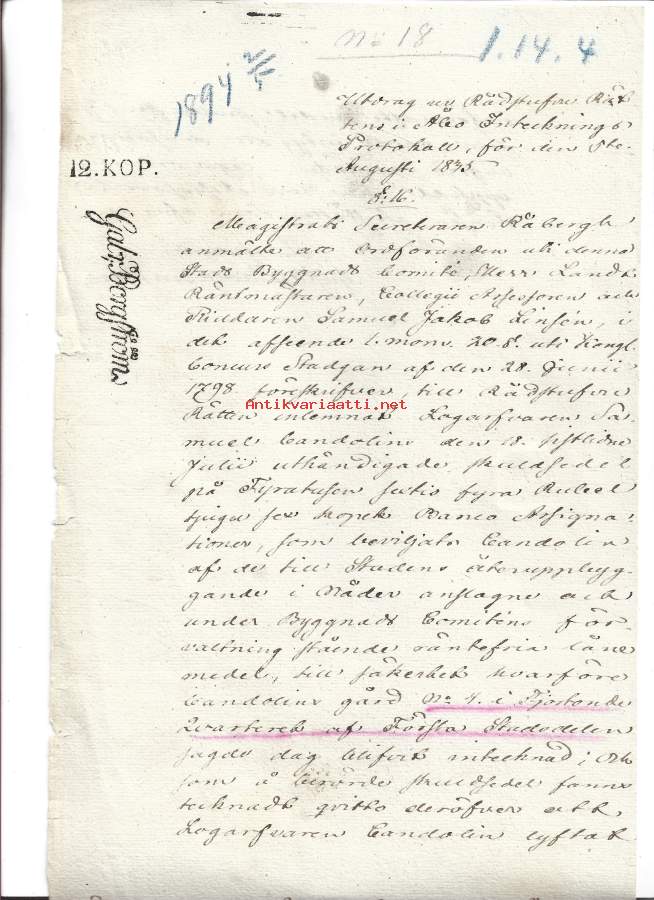 No 18
1.14.4
1894 2/5
Utdrag ur Rådstufvu Rät
tens i Åbo Intecknings
Protokoll, för den 8de
Augusti 1835.
§. 16.
12. KOP.
Magistrats Secreteraren Råbergh
anmälte att Ordföranden uti denna
Stads Byggnads Comité, Herr Landt
Räntmästaren, Collegii Assessoren och
Riddaren Samuel Jakob Linsén, i
det afseende 1. mom. 20. §. uti Kongl.
Concurs Stadgan af den 28. Junii
1798 föreskrifver, till Rådstufvu
Rätten inlemnat Logarfvaren Sa
muel Candolins den 18. sistlidne
Julii uthändigade skuldsedel
på Fyratusen sextio fyra Rubel
tjugu sex kopek Banco Assigna-
tioner, som beviljats Candolin
af de till Stadens återuppbyg-
gande i Nåder anslagne och
under Byggnads Comiténs för-
valtning stående räntefria låne
medel, till säkerhet hvarföre
Candolins gård No 4. i Fjortonde
Qvarteret af Första Stadsdelen
sagde dag blifvit intecknad; Och
som å berörde skuldsedel fanns
tecknadt qvitto deröfver att
Logarfvaren Candolin lyftat
Antikvariaatti.net